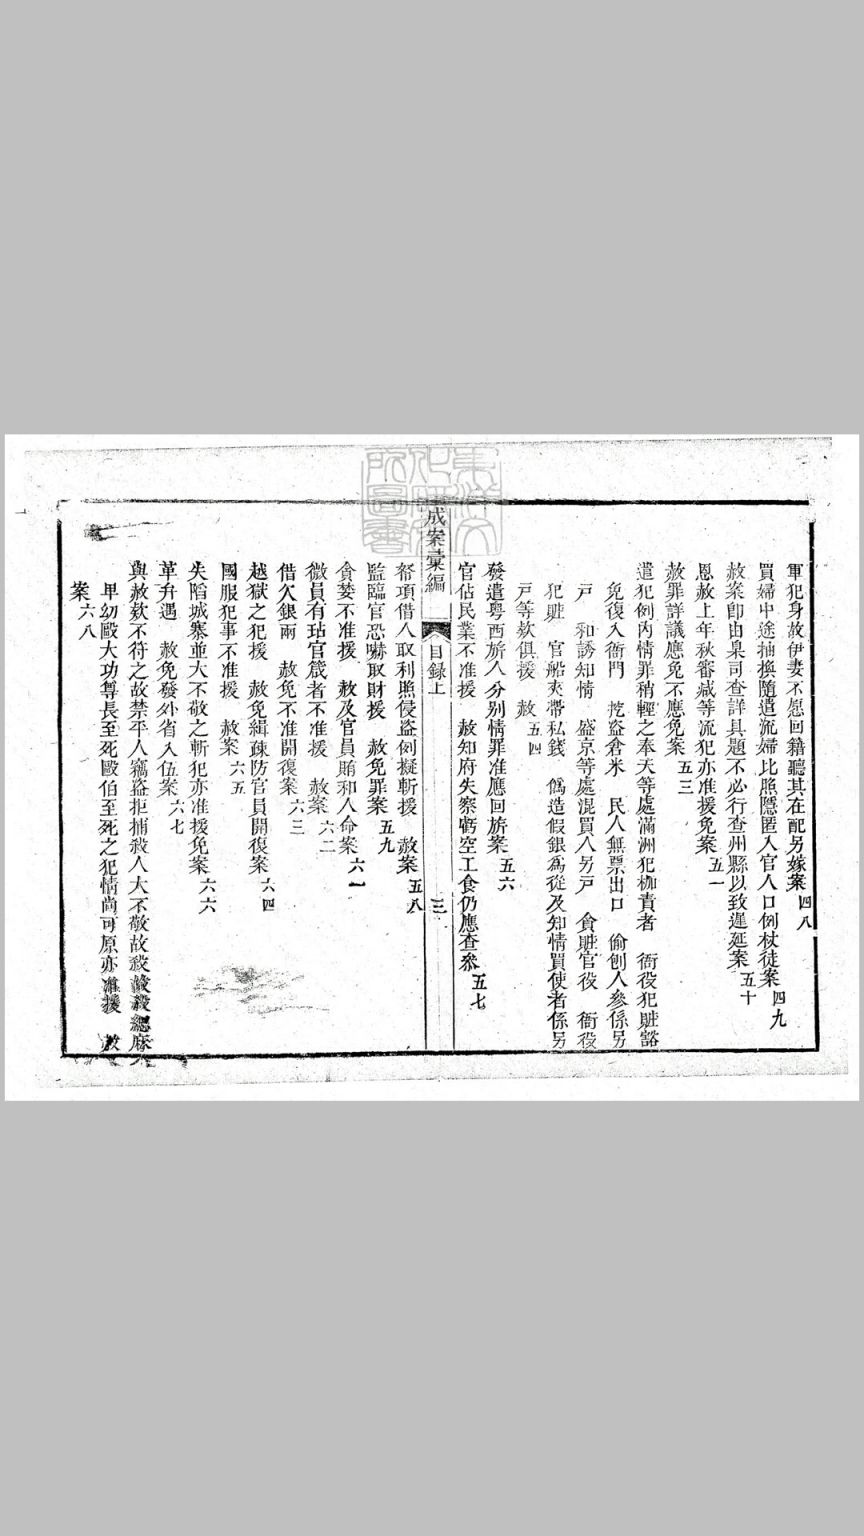 軍犯身故伊妻不愿回籍聽其在配另嫁案四八
買婦中途抽換隨遣流婦比照隱匿入官人口例杖徒案四九
赦案卽由臬司查詳具題不必行查州縣以致遲延案五十
恩赦上年秋審減等流犯亦准援免案五一
赦罪詳議應免不應免案五三
遣犯例內情罪稍輕之奉天等處滿洲犯枷責者 衙役犯賍豁
免復入衙門 挖盜倉米 民人無票出口 偷刨人參係另
戶 和誘知情 盛京等處混買八另戶 貪賍官役 衙役
犯賍 官船夾帶私錢 僞造假銀爲從及知情買使者係另
戶等欵俱援 赦五四
發遣粵西旂人分別情罪准應回旂案五六
官佔民業不准援 赦知府失察虧空工食仍應查叅五七
成案彙編
目錄上
三
帑項借人取利照侵盜例擬斬援 赦案五八
監臨官恐嚇取財援 赦免罪案五九
貪婪不准援 赦及官員賄和人命案六一
微員有玷官箴者不准援 赦案六二
借欠銀兩 赦免不准開復案六三
越獄之犯援 赦免緝疎防官員開復案六四
國服犯事不准援 赦案六五
失陷城寨並大不敬之斬犯亦准援免案六六
革弁遇 赦免發外省入伍案六七
與赦欵不符之故禁平人竊盜拒捕殺人大不敬故殺緦麻
卑幼毆大功尊長至死毆伯至死之犯情尚可原亦准援 赦
案六八